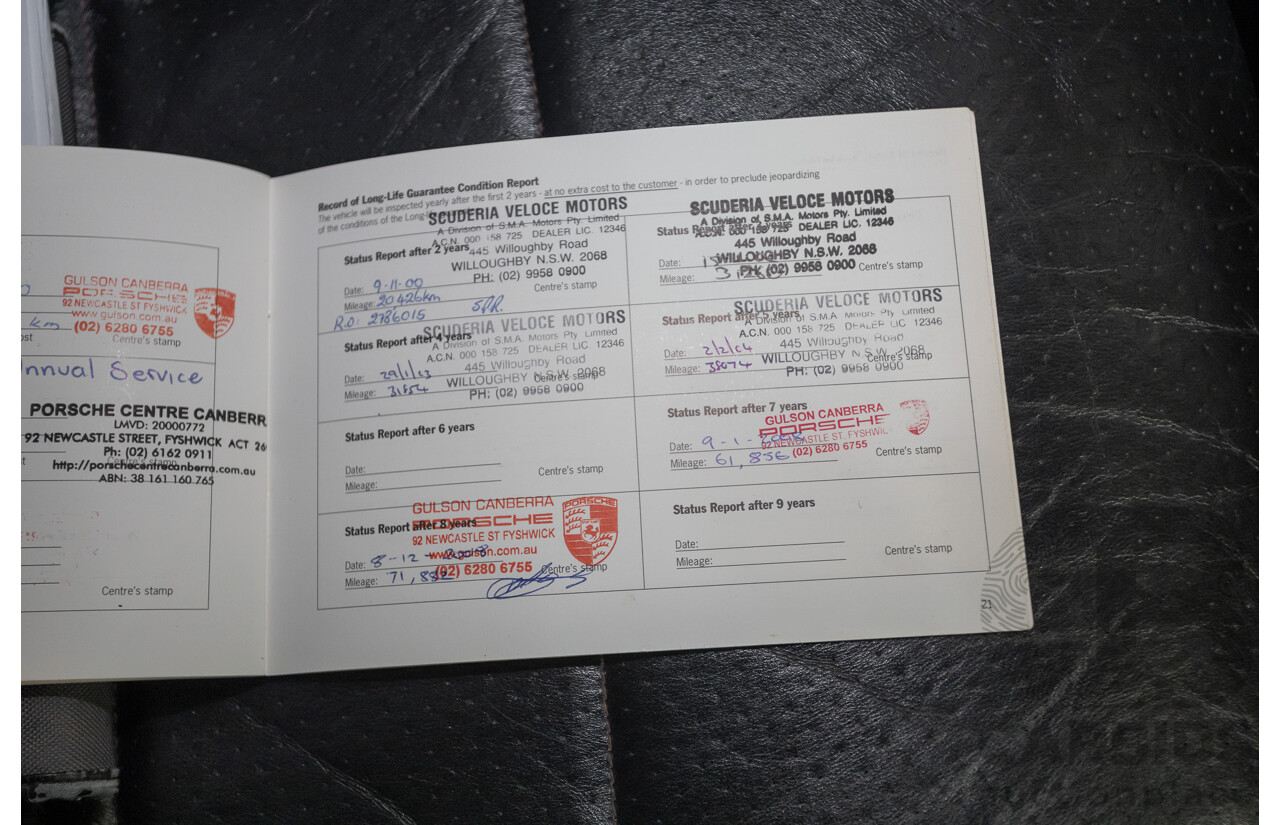 GULSON CANBERRA
PORSCHE
92 NEWCASTLE ST FYSHWICK
www.gulson.com.au
km
(02) 6280 6755
Centre's stamp
Annual Service
PORSCHE CENTRE CANBERR
LMVD: 20000772
92 NEWCASTLE STREET, FYSHWICK ACT 26
Ph: (02) 6162 0911
http://porschecentrecanberra.com.au
ABN: 38 161 160 765
Centre's stamp
Record of Long-Life Guarantee Condition Report
The vehicle will be inspected yearly after the first 2 years - at no extra cost to the customer - in order to preclude jeopardizing
of the conditions of the Long-
SCUDERIA VELOCE MOTORS
A Division of S.M.A. Motors Pty. Limited
A.C.N. 000 158 725 DEALER LIC. 12346
Status Report after 2 years
445 Willoughby Road
WILLOUGHBY N.S.W. 2068
PH: (02) 9958 0900
Date: 9-11-00
Centre's stamp
Mileage: 20,426km
R.O: 2786015
SCUDERIA VELOCE MOTORS
A Division of S.M.A. Motors Pty. Limited
Status Report after
A.C.N. 000 158 725 DEALER LIC. 12346
445 Willoughby Road
Date:
WILLOUGHBY N.S.W. 2068
Mileage:
PH: (02) 9958 0900
Centre's stamp
SCUDERIA VELOCE MOTORS
Status Report after 4 years
A Division of S.M.A. Motors Pty. Limited
A.C.N. 000 158 725 DEALER LIC. 12346
445 Willoughby Road
Date:
WILLOUGHBY N.S.W. 2068
Centre's stamp
Mileage:
PH: (02) 9958 0900
SCUDERIA VELOCE MOTORS
Status Report after 5 years
A Division of S.M.A. Motors Pty. Limited
A.C.N. 000 158 725 DEALER LIC. 12346
445 Willoughby Road
Date: 2/2/04
WILLOUGHBY N.S.W. 2068
Centre's stamp
Mileage: 38074
PH: (02) 9958 0900
Status Report after 6 years
Date:
Mileage:
Centre's stamp
Status Report after 7 years
GULSON CANBERRA
PORSCHE
Date: 9-1-
92 NEWCASTLE ST, FYSHWIC
Mileage: 61,856
(02) 6280 6755
Centre's stamp
GULSON CANBERRA
PORSCHE
Status Report after 8 years
PORSCHE
92 NEWCASTLE ST FYSHWICK
Date: 8-12-2008
www.gulson.com.au
Mileage: 71,882
(02) 6280 6755
Centre's stamp
Status Report after 9 years
Date:
Mileage:
Centre's stamp
21